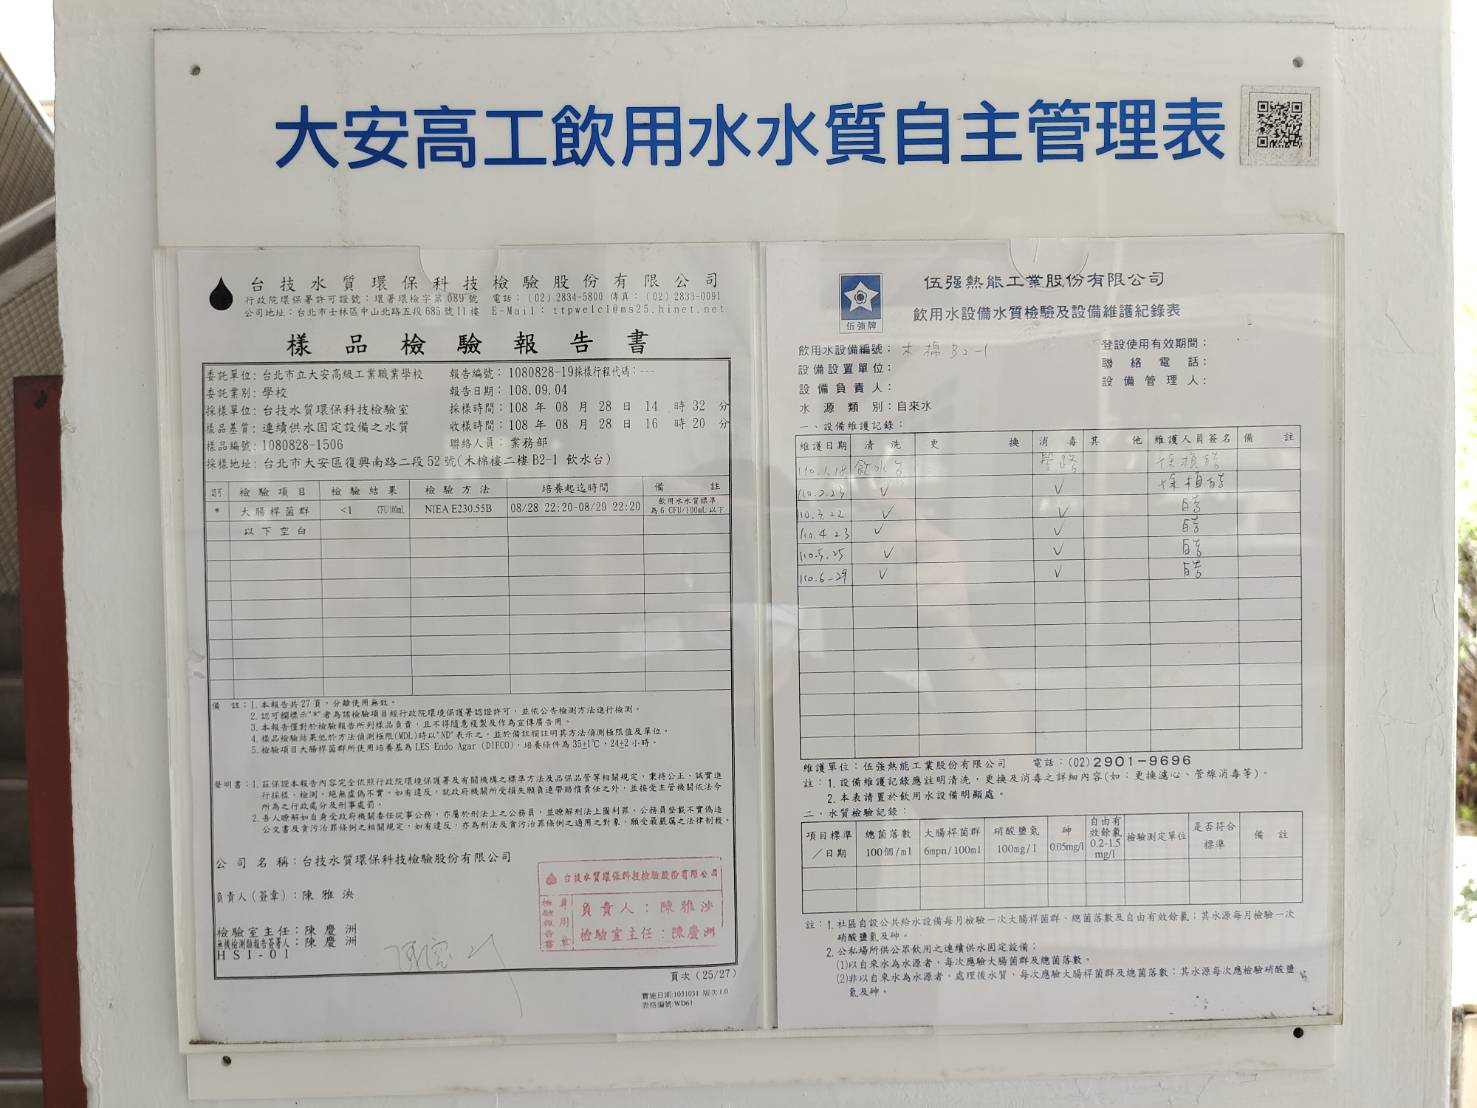 大安高工飲用水水質自主管理表
台技水質環保科技檢驗股份有限公司
行政院環保署許可證號：環署環檢字第089號 電話：(02)2834-5800 傳真：(02)2833-0091
公司地址：台北市士林區中山北路五段685號11樓 E-Mail：ttpwelcl@ms25.hinet.net
樣品檢驗報告書
委託單位：台北市立大安高級工業職業學校 報告編號：1080828-19採樣行程代碼：---
委託業別：學校 報告日期：108.09.04
採樣單位：台技水質環保科技檢驗室 採樣時間：108 年 08 月 28 日 14 時 32 分
樣品基質：連續供水固定設備之水質 收樣時間：108 年 08 月 28 日 16 時 20 分
樣品編號：1080828-1506 聯絡人員：業務部
採樣地址：台北市大安區復興南路二段52號(木棉樓二樓B2-1 飲水台)
認可 檢驗項目 檢驗結果 檢驗方法 培養起迄時間 備註
* 大腸桿菌群 <1 CFU/100mL NIEA E230.55B 08/28 22:20-08/29 22:20 飲用水水質標準為 6 CFU/100mL 以下
以下空白
備 註：1.本報告共27頁，分離使用無效。
2.認可欄標示"*"者為該檢驗項目經行政院環境保護署認證許可，並依公告檢測方法進行檢測。
3.本報告僅對於檢驗報告所列樣品負責，且不得隨意複製及作為宣傳廣告用。
4.樣品檢驗結果低於方法偵測極限(MDL)時以"ND"表示之，並於備註欄註明其方法偵測極限值及單位。
5.檢驗項目大腸桿菌群所使用培養基為 LES Endo Agar (DIFCO)，培養條件為 35±1℃，24±2 小時。
聲明書：1.茲保證本報告內容完全依照行政院環境保護署及有關機構之標準方法及品保品管等相關規定，秉持公正、誠實進
行採樣、檢測，絕無虛偽不實，如有違反，就政府機關所受損失願負連帶賠償責任之外，並接受主管機關依法令
所為之行政處分及刑事處罰。
2.吾人瞭解如自身受政府機關委任從事公務，亦屬於刑法上之公務員，並瞭解刑法上圖利罪、公務員登載不實偽造
公文書及貪污治罪條例之相關規定，如有違反，亦為刑法及貪污治罪條例之適用之對象，願受最嚴厲之法律制裁。
公司名稱：台技水質環保科技檢驗股份有限公司
負責人(簽章)：陳雅泱
檢驗室主任：陳慶洲
無機檢測類報告簽署人：陳慶洲
HSI-01
台技水質環保科技檢驗股份有限公司
檢驗報告專用章
負責人：陳雅泱
檢驗室主任：陳慶洲
頁次 (25/27)
實施日期:1031031 版次1.0
表格編號:WD61
伍強牌
伍强熱能工業股份有限公司
飲用水設備水質檢驗及設備維護紀錄表
飲用水設備編號：木棉B2-1 登設使用有效期間：
設備設置單位： 聯絡電話：
設備負責人： 設備管理人：
水源類別：自來水
一、設備維護記錄：
維護日期 清洗 更換 消毒 其他 維護人員簽名 備註
110.1.18 飲水台 管路
110.2.23 ✓ ✓
110.3.22 ✓ ✓
110.4.23 ✓ ✓
110.5.25 ✓ ✓
110.6-29 ✓ ✓
維護單位：伍强熱能工業股份有限公司 電話：(02)2901-9696
註：1.設備維護記錄應註明清洗、更換及消毒之詳細內容(如：更換濾心、管線消毒等)。
2.本表請置於飲用水設備明顯處。
二、水質檢驗記錄：
項目標準／日期 總菌落數 100個/ml 大腸桿菌群 6mpn/100ml 硝酸鹽氮 100mg/l 砷 0.05mg/l 自由有效餘氯 0.2-1.5 mg/l 檢驗測定單位 是否符合標準 備註
註：1.社區自設公共給水設備每月檢驗一次大腸桿菌群、總菌落數及自由有效餘氯；其水源每月檢驗一次
硝酸鹽氮及砷。
2.公私場所供公眾飲用之連續供水固定設備：
(1)以自來水為水源者，每次應驗大腸桿菌群及總菌落數。
(2)非以自來水為水源者，處理後水質，每次應驗大腸桿菌群及總菌落數；其水源每次應檢驗硝酸鹽
氮及砷。